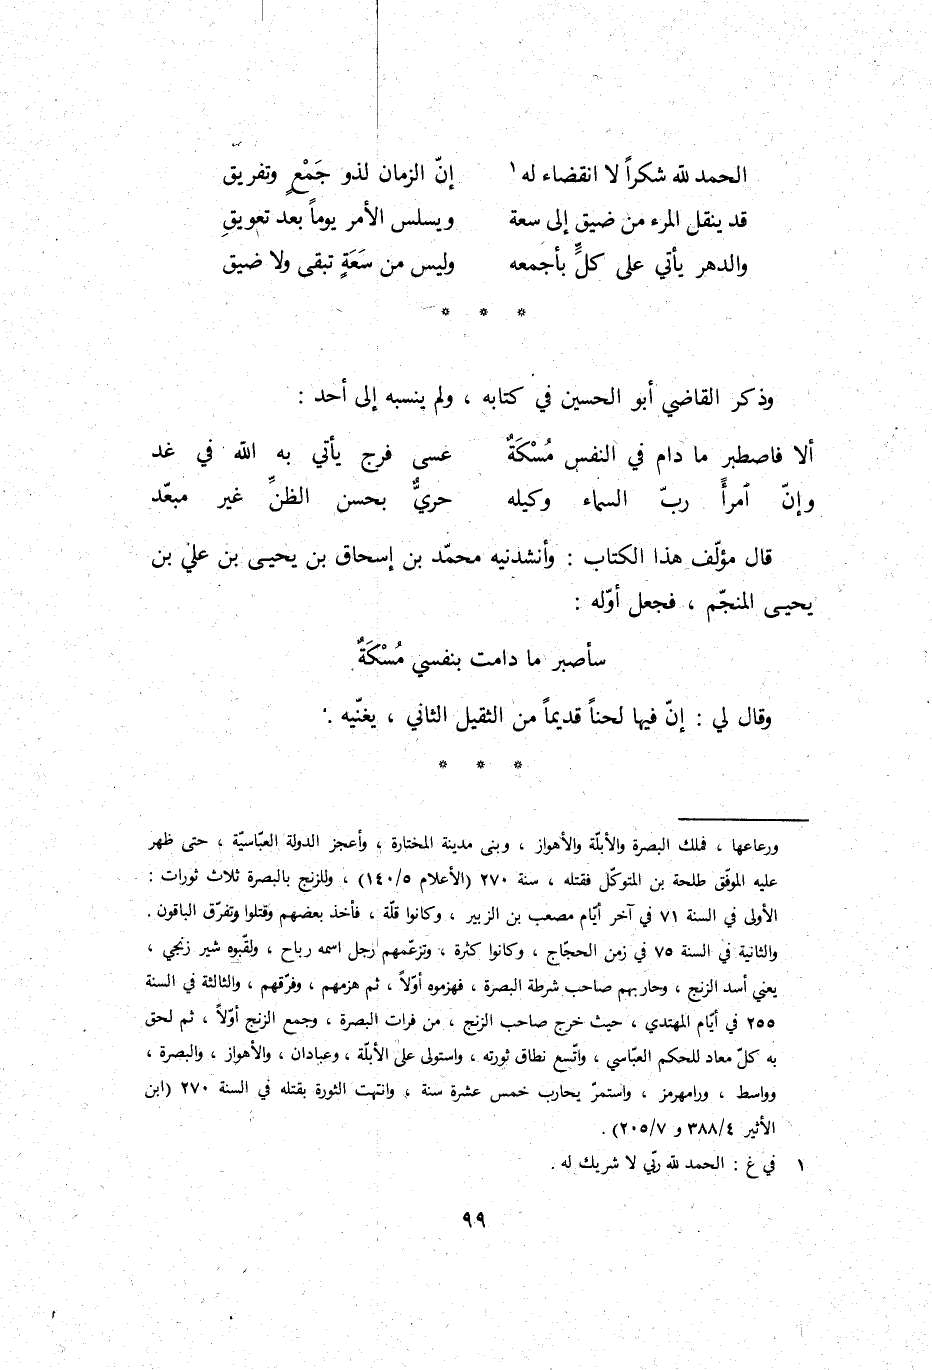 الحمد لله شكراً لا انقضاء له١ إنّ الزمان لذو جَمْعٍ وتفريق
قد ينقل المرء من ضيق إلى سعة ويسلس الأمر يوماً بعد تعويقِ
والدهر يأتي على كلٍّ بأجمعه وليس من سَعَةٍ تبقى ولا ضيق
* * *
وذكر القاضي أبو الحسين في كتابه ، ولم ينسبه إلى أحد :
ألا فاصطبر ما دام في النفس مُسْكَةٌ عسى فرج يأتي به الله في غد
وإنّ ٱمرأً ربّ السماء وكيله حريٌّ بحسن الظنّ غير مبعّد
قال مؤلّف هذا الكتاب : وأنشدنيه محمّد بن إسحاق بن يحيى بن علي بن
يحيى المنجّم ، فجعل أوّله :
سأصبر ما دامت بنفسي مُسْكَةٌ
وقال لي : إنّ فيها لحناً قديماً من الثقيل الثاني ، يغنّيه .
* * *
ورعاعها ، فملك البصرة والأبلّة والأهواز ، وبنى مدينة المختارة ، وأعجز الدولة العبّاسيّة ، حتى ظهر
عليه الموفّق طلحة بن المتوكّل فقتله ، سنة ٢٧٠ (الأعلام ١٤٠/٥) ، وللزنج بالبصرة ثلاث ثورات :
الأولى في السنة ٧١ في آخر أيّام مصعب بن الزبير ، وكانوا قلّة ، فأخذ بعضهم وقتلوا وتفرّق الباقون .
والثانية في السنة ٧٥ في زمن الحجّاج ، وكانوا كثرة ، وتزعّمهم رجل اسمه رباح ، ولقّبوه شير زنجي ،
يعني أسد الزنج ، وحاربهم صاحب شرطة البصرة ، فهزموه أوّلاً ، ثم هزمهم ، وفرّقهم ، والثالثة في السنة
٢٥٥ في أيّام المهتدي ، حيث خرج صاحب الزنج ، من فرات البصرة ، وجمع الزنج أوّلاً ، ثم لحق
به كلّ معاد للحكم العبّاسي ، واتّسع نطاق ثورته ، واستولى على الأبلّة ، وعبادان ، والأهواز ، والبصرة ،
وواسط ، ورامهرمز ، واستمرّ يحارب خمس عشرة سنة ، وانتهت الثورة بقتله في السنة ٢٧٠ (ابن
الأثير ٣٨٨/٤ و ٢٠٥/٧) .
١ في غ : الحمد لله ربّي لا شريك له .
٩٩